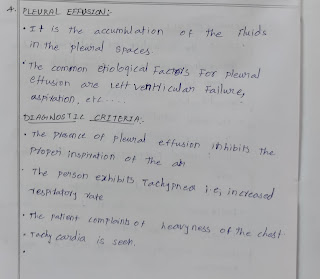 4. PLEURAL EFFUSION:-
• It is the accumulation of the fluids
in the pleural spaces.
• The common etiological Factors For pleural
effusion are Left ventricular Failure,
aspiration, etc.....
DIAGNOSTIC CRITERIA:
• The presence of pleural effusion inhibits the
proper inspiration of the air
• The person exhibits Tachypnea i.e, increased
respiratory rate
• The patient complaints of heavyness of the chest.
• Tachy cardia is seen.
•